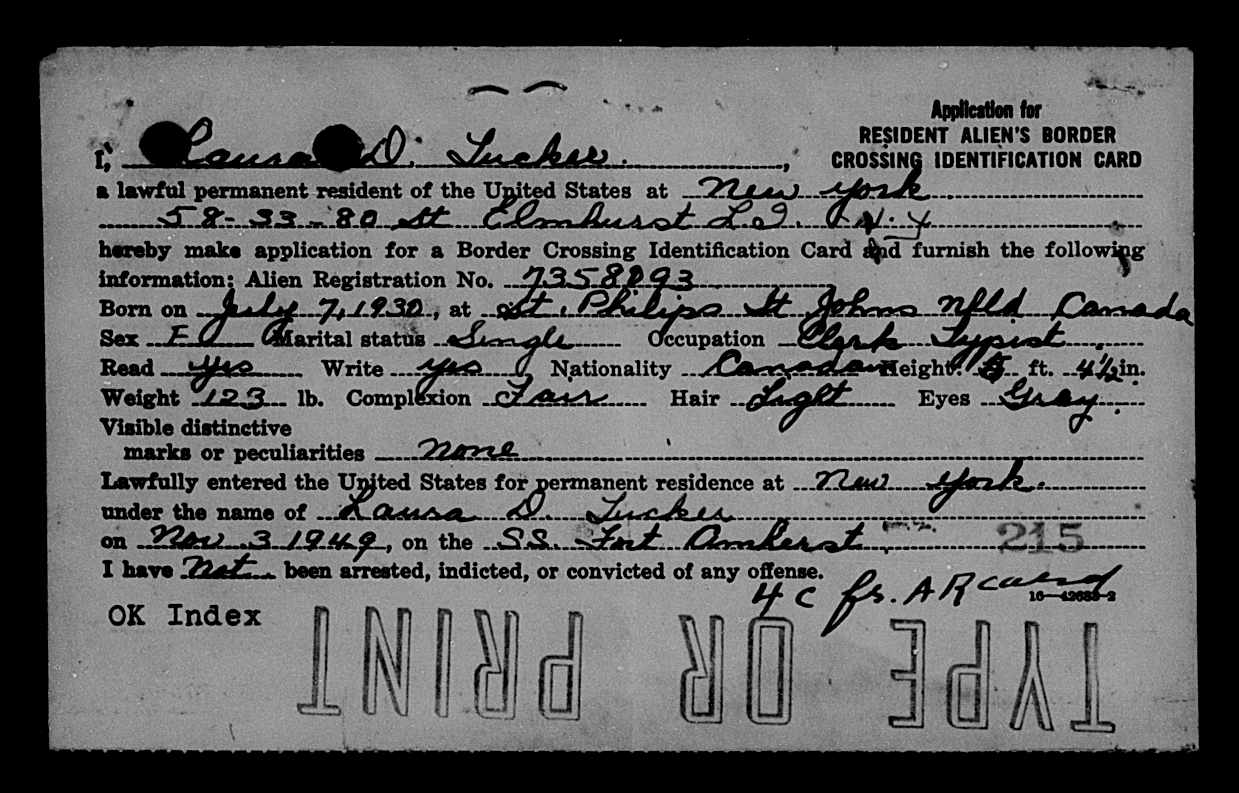 Application for
RESIDENT ALIEN'S BORDER
CROSSING IDENTIFICATION CARD
I, Laura D. Tucker.,
a lawful permanent resident of the United States at New York
58-33-80 St Elmhurst L.I. N.Y
hereby make application for a Border Crossing Identification Card and furnish the following
information: Alien Registration No. 7358093
Born on July 7, 1930, at St. Philips St Johns Nfld Canada
Sex F Marital status Single Occupation Clerk Typist
Read yes Write yes Nationality Canadian Height 5 ft. 4½ in.
Weight 123 lb. Complexion Fair Hair Light Eyes Gray
Visible distinctive
marks or peculiarities none
Lawfully entered the United States for permanent residence at New York.
under the name of Laura D. Tucker
on Nov 3 1949, on the S.S. Fort Amherst
215
I have Not been arrested, indicted, or convicted of any offense.
4 c fs. AR card
16—42685-2
OK Index
TYPE OR PRINT